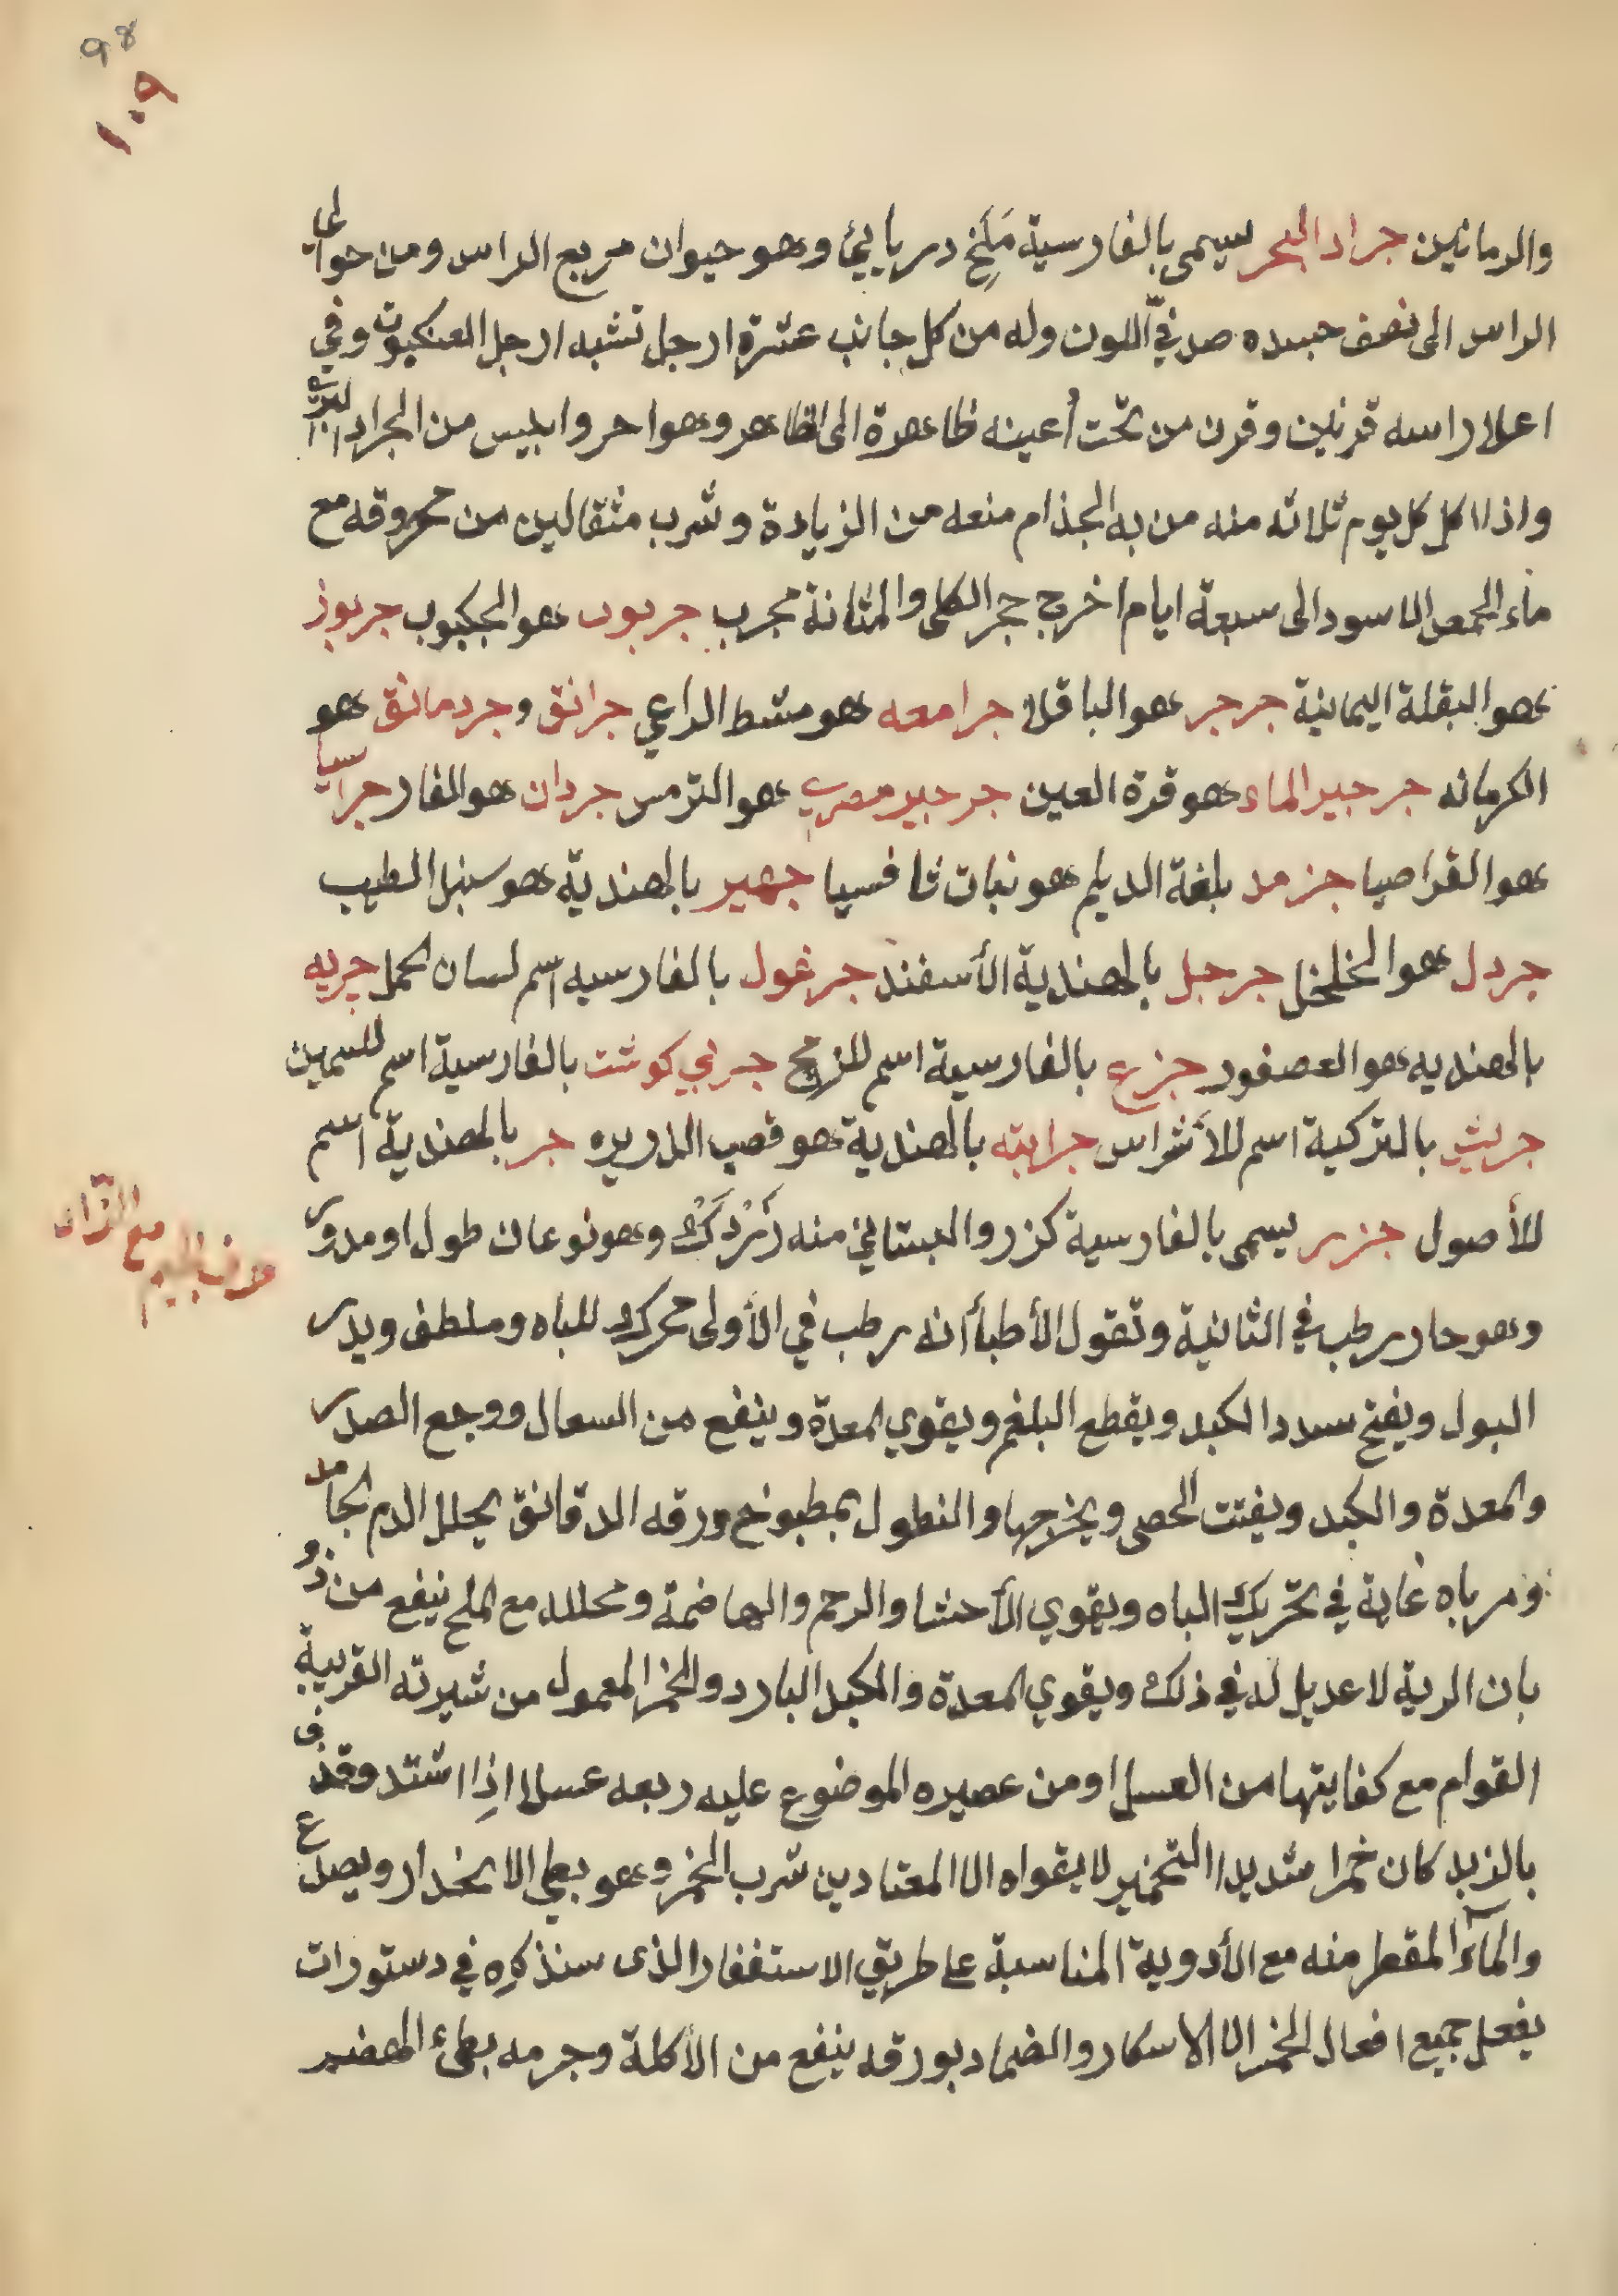 98
١٠٩
والرمانين جراد البحر يسمى بالفارسية مَلَخ دريايئ وهو حيوان مربع الراس ومن حوالي
الراس الى نصف جسده صدفيّ اللون وله من كل جانب عشرة ارجل تشبه ارجل العنكبوت وفي
اعلا راسه قرنين وقرن من تحت أعينه ظاهرة الى الظاهر وهو احر وايبس من الجراد البري
واذا اكل كل يوم ثلاثه منه من به الجذام منعه من الزيادة وشرب مثقالين من محروقه مع
ماء الحمص الاسود الى سبعة ايام اخرج حجر الكلى والمثانة مجرب جربوب هو الجكبوب جربوز
هو البقلة اليمانية جرجر هو الباقلا جرامعه هو مشط الراعي جرانق وجردمانق هو
الكرمانه جرجير الماء هو قرة العين جرجير مصري هو الترمس جردان هو الفار جراسيا
هو القراصيا جزمد بلغة الديلم هو نبات ثافسيا جهير بالهندية هو سنبل الطيب
جردل هو الخلخل جرجبل بالهندية الأسفند جرغول بالفارسيه اسم لسان الحمل جريه
بالهنديه هو العصفور جزع بالفارسية اسم للزنج جربي كوشت بالفارسية اسم للسمين
جريش بالتركية اسم للأشراس جرابته بالهندية هو قصب الذريره جر بالهندية اسم
للأصول جزر يسمى بالفارسية كزر والبستاني منه زَرْدَكْ وهو نوعان طول او مدور
حرف الجيم مع الزاء
وهو حار رطب في الثانية وتقول الأطبأ أنه رطب في الأولى محرك للباه وملطف ويدر
البول ويفتح سدد الكبد ويقطع البلغم ويقوي المعدة وينفع من السعال ووجع الصدر
والمعدة والكبد ويفتت الحصى ويخرجها والنطول بمطبوخ ورقه الدقانق يحلل الدم الجامد
ومرباه غاية في تحريك الباه ويقوي الأحشا والرحم والهاضمة ومخلله مع الملح ينفع من ذو
بان الرية لا عديل له في ذلك ويقوي المعدة والكبد البارد والخمر المعمول من شيرته القريبة
القوام مع كفايتها من العسل او من عصيره الموضوع عليه ربعه عسلا اذا اشتد وقذف
بالزبد كان خمرا شديد التخمير لا يقواه الا المعتادين شرب الخمر وهو بطي الانحدار ويصدع
والمآء المقطر منه مع الأدوية المناسبة على طريق الاستغفار الذى سنذكره في دستورات
يفعل جميع افعال الخمر الا الاسكار والضماد بورقه ينفع من الأكلة وجرمه بطئ الهضم